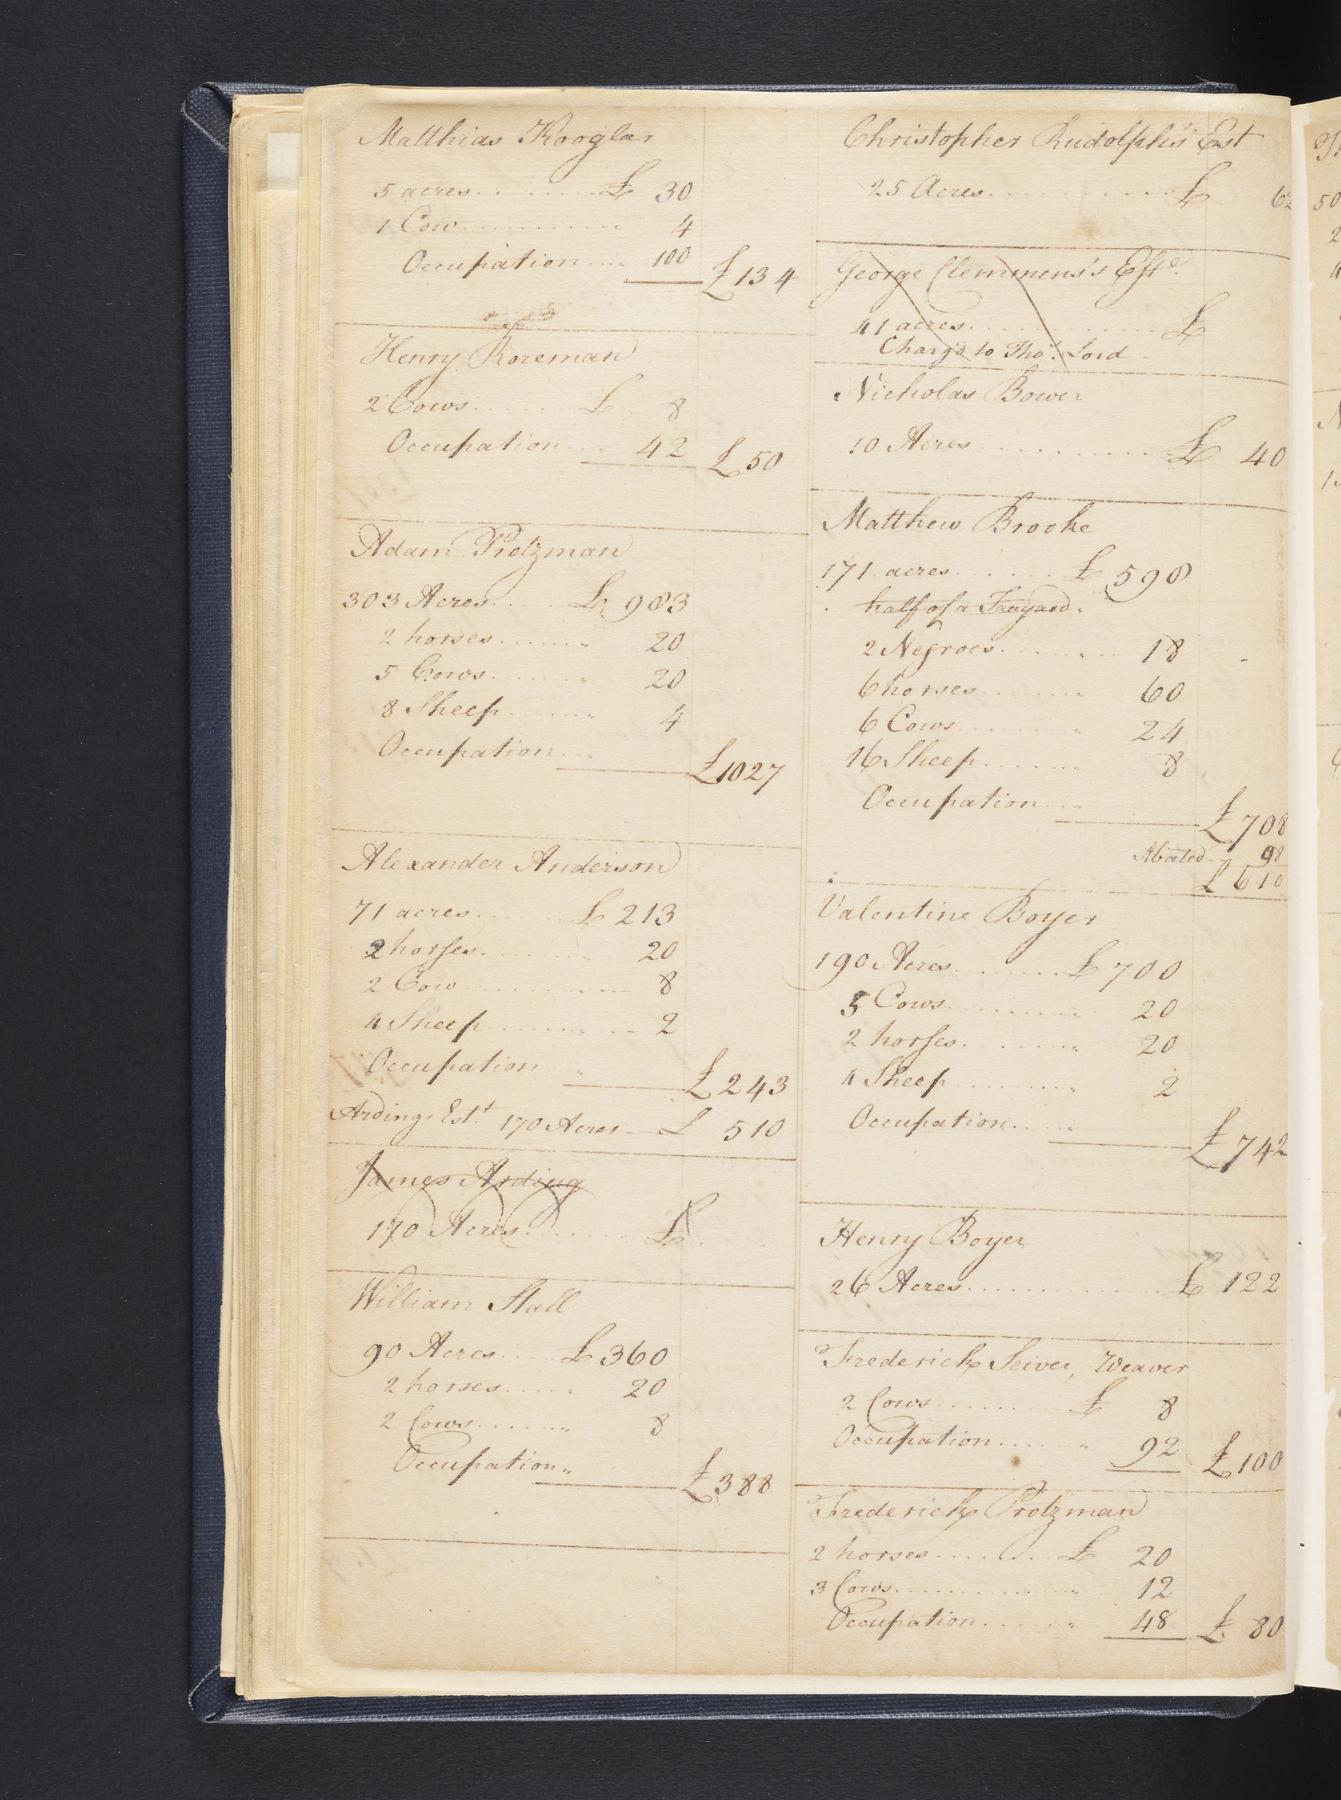 Matthias Kooglar
5 acres........£ 30
1 Cow........... 4
Occupation.... 100 £134
Henry Koreman
2 Cows...... £ 8
Occupation.... 42 £50
Adam Protzman
303 Acres.....£ 983
2 horses........" 20
5 Cows........" 20
8 Sheep......." 4
Occupation.... £1027
Alexander Anderson
71 acres.......£ 213
2 horses........ 20
2 Cow........... 8
4 Sheep........ 2
Occupation..." £243
Ardings Estt. 170 Acres - £ 510
James Arding
170 Acres........£
William Stall
90 Acres.....£ 360
2 horses......" 20
2 Cows......." 8
Occupation" £388
Christopher Rudolph's Est
25 Acres............£ 62
George Clemmens's Este.
41 acres............£
Charg'd to Thos. Lord
Nicholas Bower
10 Acres............£ 40
Matthew Brooke
171 acres......£ 598
half of a Tanyard.
2 Negroes........" 18
6 horses........." 60
6 Cows..........." 24
16 Sheep........" 8
Occupation..." £708
Abated 98
£ 610
Valentine Boyer
190 Acres.......£ 700
5 Cows..........." 20
2 horses........." 20
4 Sheep.........." 2
Occupation...." £742
Henry Boyer
26 Acres............£ 122
Frederick Seiver, Weaver
2 Cows.........£ 8
Occupation......." 92 £100
Frederick Protzman
2 horses.........£ 20
3 Cows............" 12
Occupation......" 48 £ 80